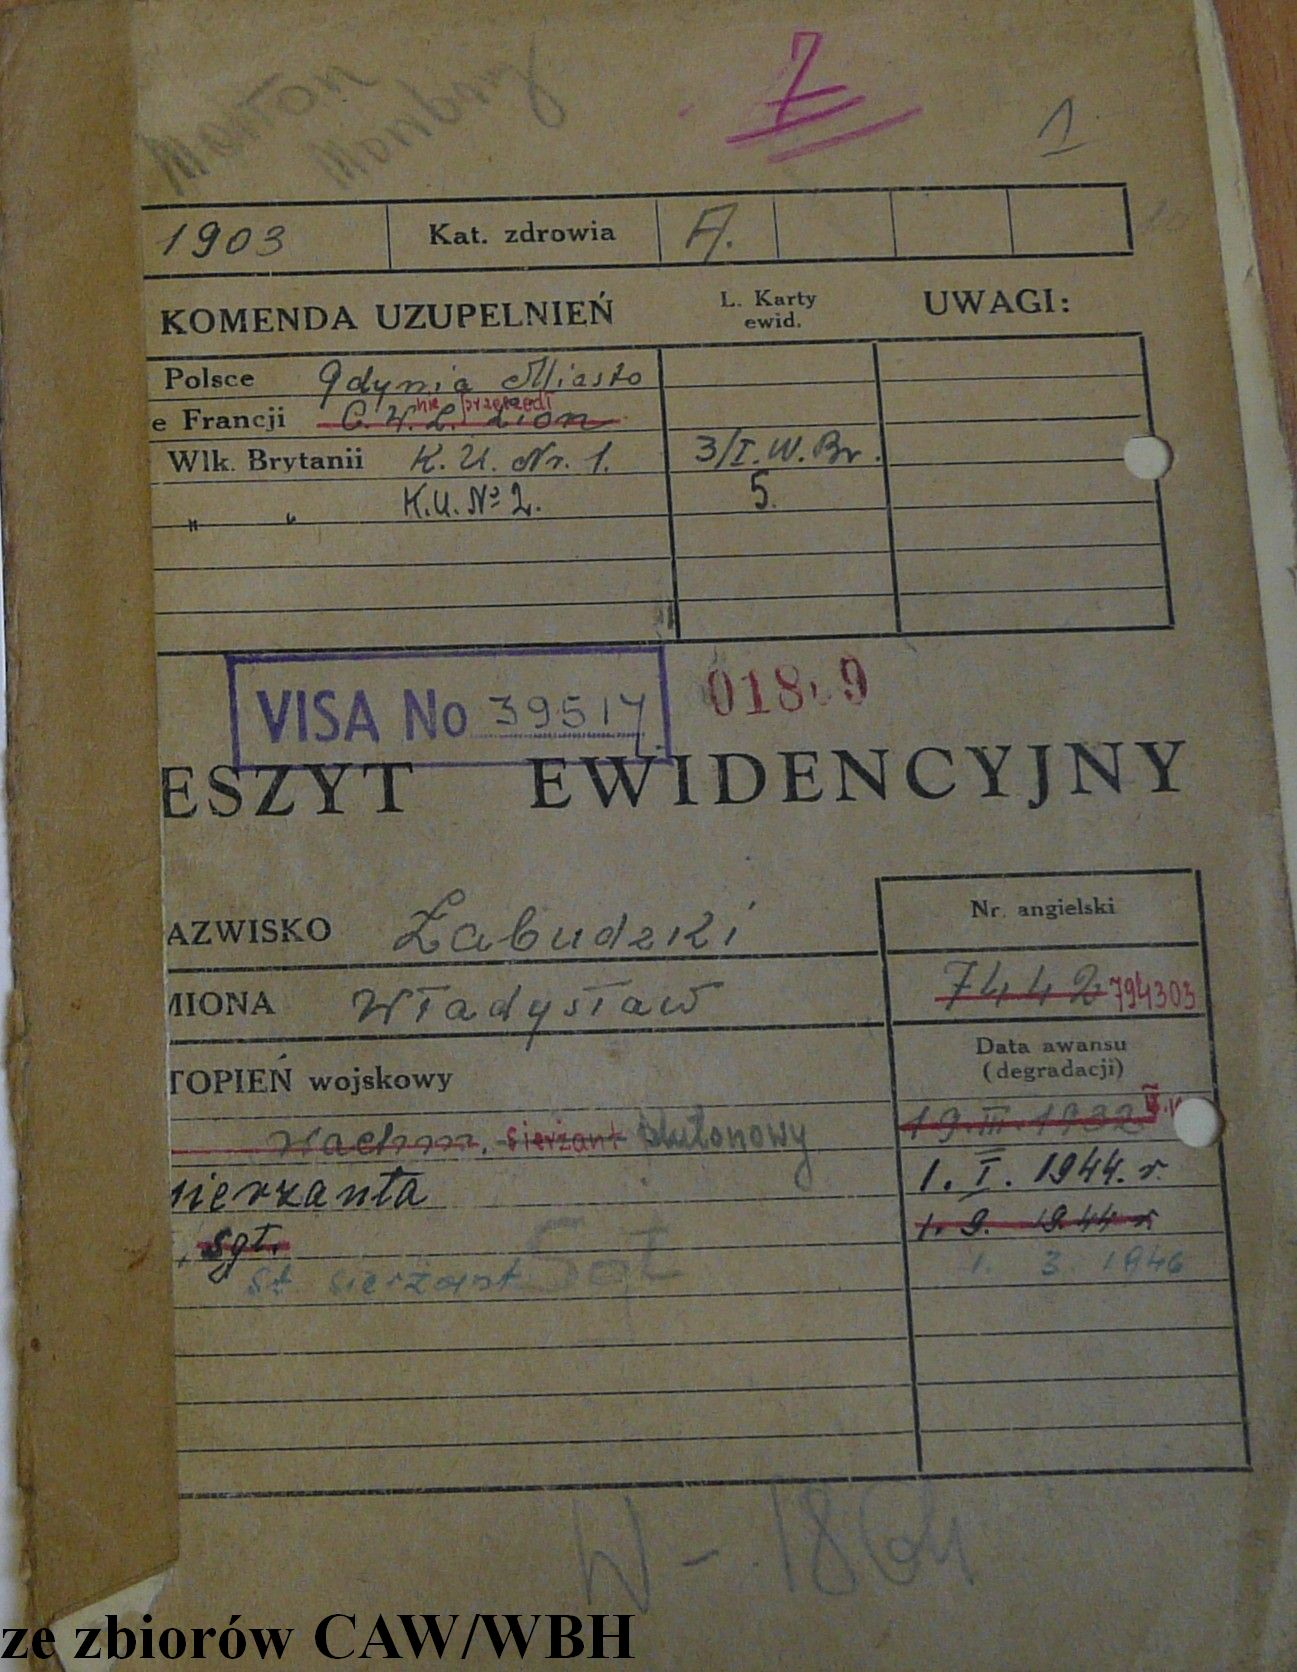 Marton
7
1
1903 Kat. zdrowia A.
KOMENDA UZUPEŁNIEŃ L. Karty ewid. UWAGI:
Polsce Gdynia Miasto
nie przeszedł
e Francji C.W.L. Lion
Wlk. Brytanii K.U. Nr. 1. 3/I.W.Br.
" " K.U. № 2. 5.
VISA No 39517
ESZYT EWIDENCYJNY
AZWISKO Zabudzki
Nr. angielski
MIONA Władysław
7442 794303
TOPIEŃ wojskowy
Data awansu
(degradacji)
wachm. sierżant plutonowy 19.III.1932
sierżanta 1.I.1944.r.
sgt. 1.9.1944 r
St. sierżant Sgt 1. 3. 1946
W-1864
ze zbiorów CAW/WBH